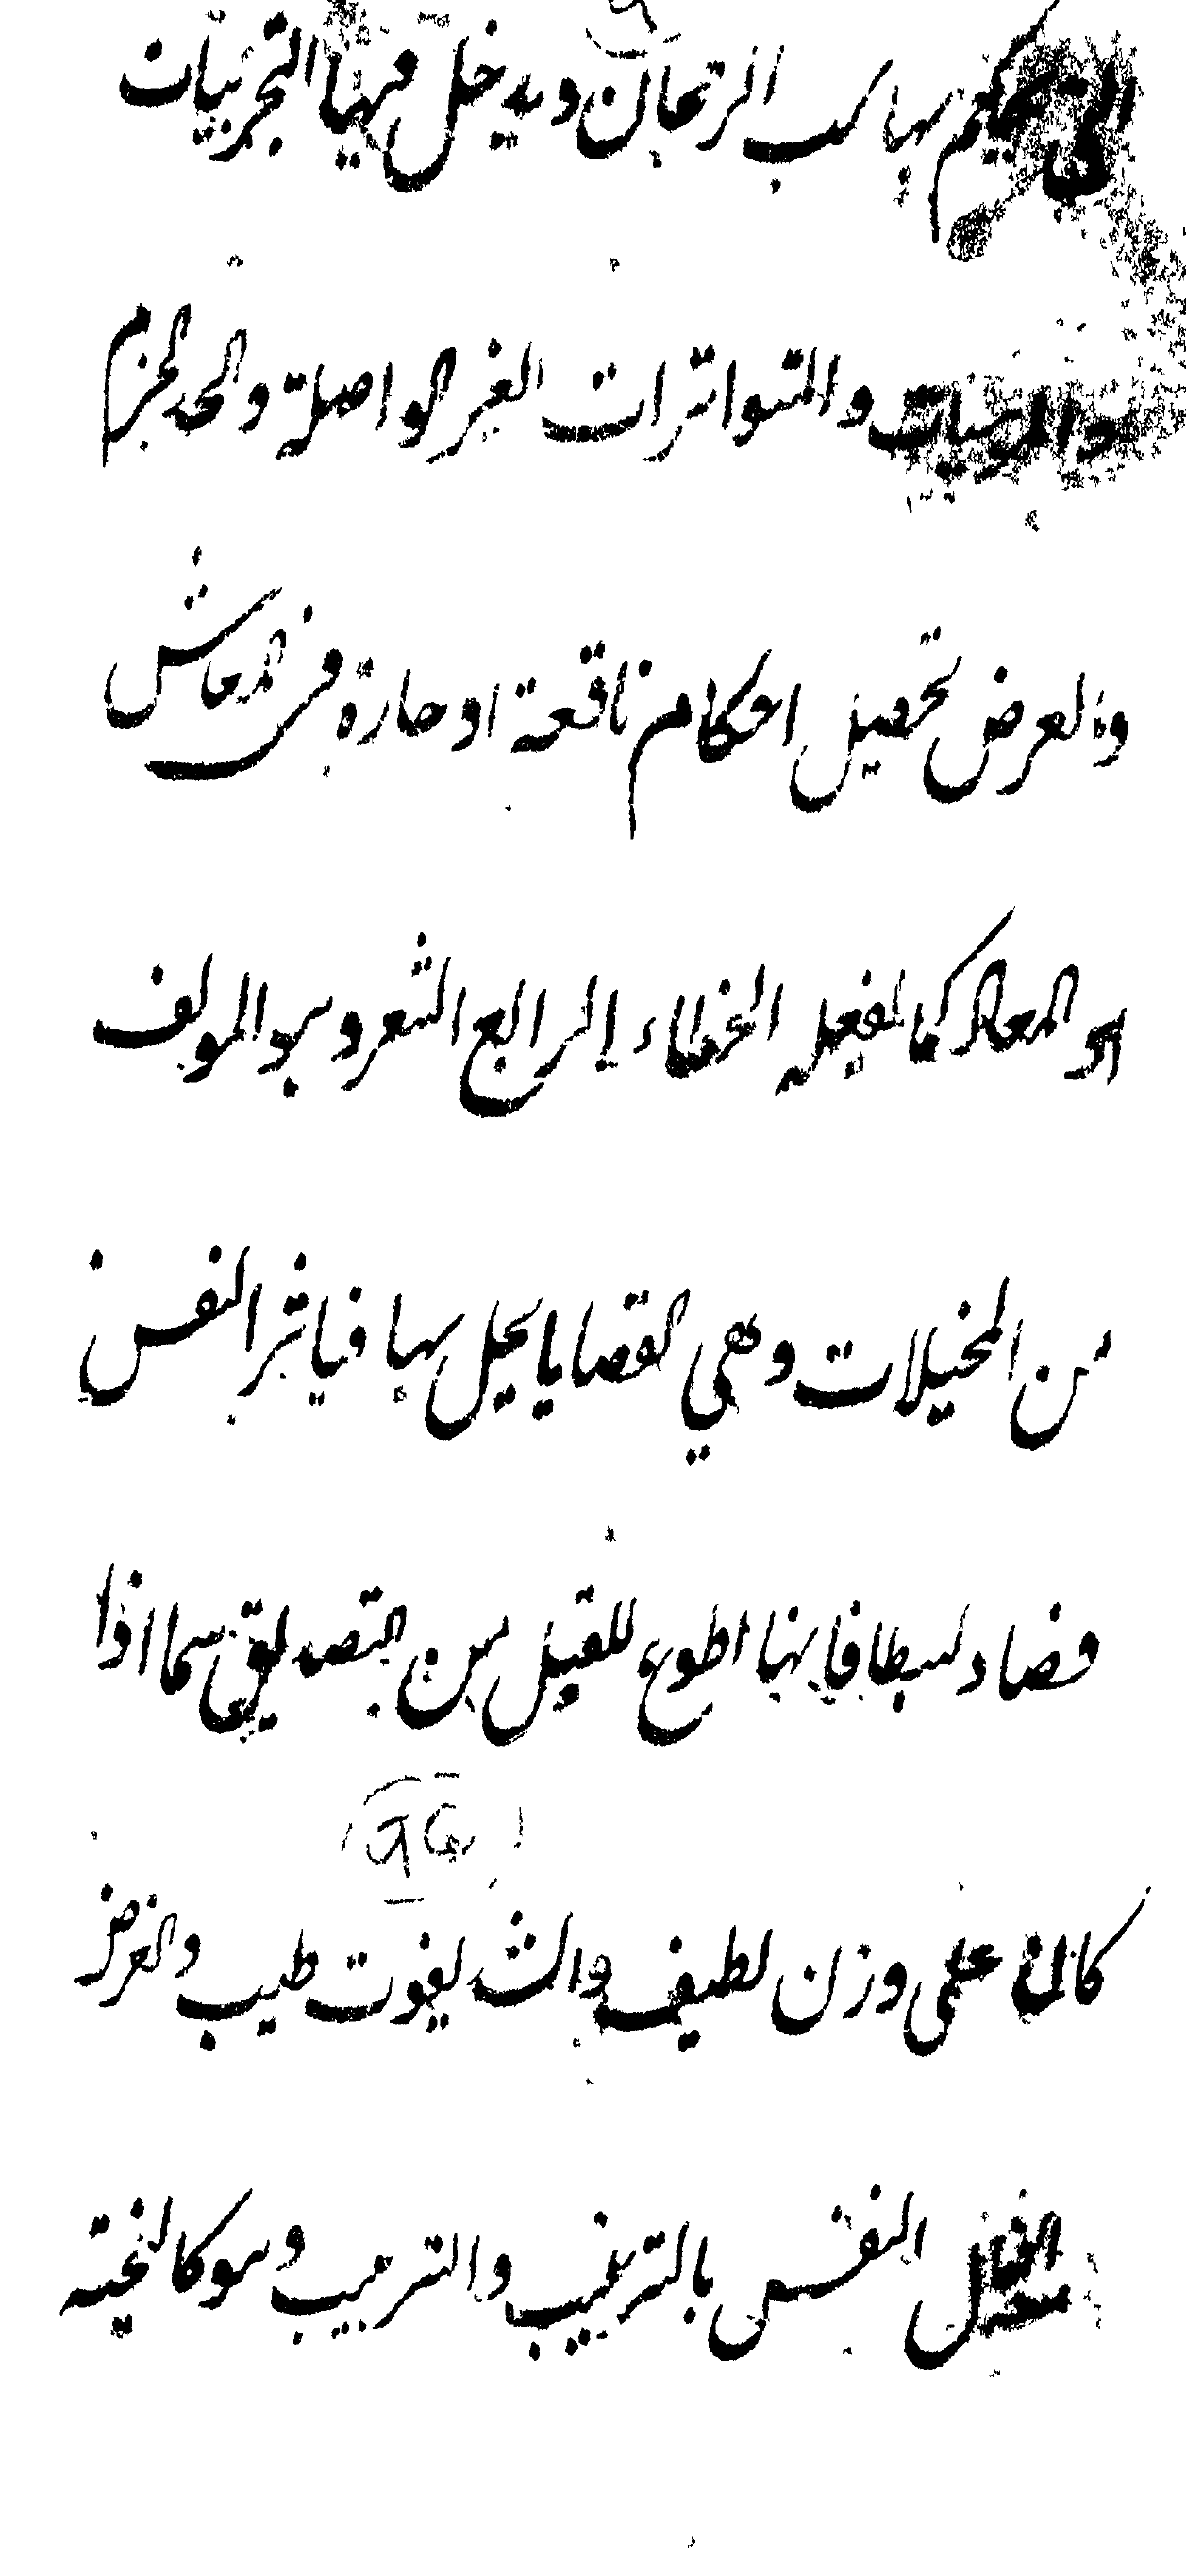 التى يحكم بها بسبب الرجحان ويدخل فيها التجربيات
والحدسيات والمتواترات الغير الواصلة والحد الجزم
والغرض تحصيل احكام نافعة او ضارة فى المعاش
او المعاد كما يفعله الخطباء الرابع الشعر وهو المولف
من المخيلات وهي القضايا يخيل بها فيتاثر النفس
قبضا وبسطا فانها اطوع للتخييل من التصديق سيما اذا
كان على وزن لطيف وانشد بصوت طيب والغرض
انفعال النفس بالترغيب والترهيب وهو كالنتيجة